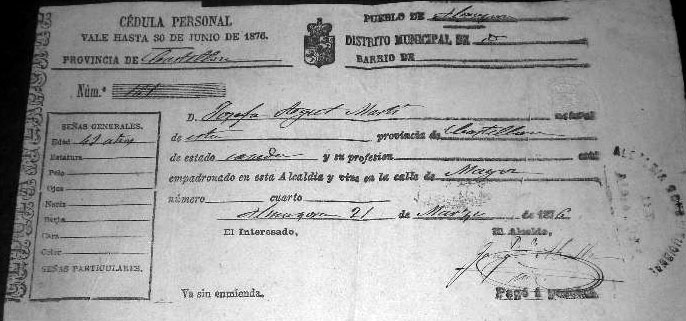 CÉDULA PERSONAL
VALE HASTA 30 DE JUNIO DE 1876.
PROVINCIA DE Castellon
PUEBLO DE Almazora
DISTRITO MUNICIPAL DE
BARRIO DE
Núm.º
SEÑAS GENERALES.
Edad 42 años
Estatura
Pelo
Ojos
Nariz
Barba
Cara
Color
SEÑAS PARTICULARES.
D. Josefa Marti natural
de esta provincia de Castellon
de estado casada y su profesion está
empadronado en esta Alcaldía y vive en la calle de Mayor
número cuarto
Almazora 21 de Marzo de 1876
El Interesado, El Alcalde,
Va sin enmienda. Pagó 1 peseta